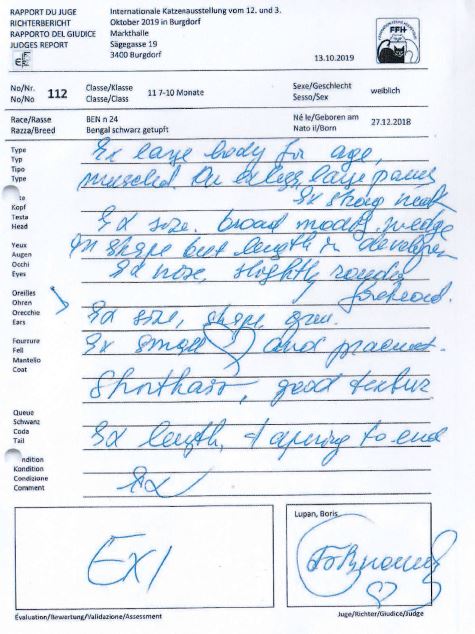 RAPPORT DU JUGE Internationale Katzenausstellung vom 12. und 3.
RICHTERBERICHT Oktober 2019 in Burgdorf
RAPPORTO DEL GIUDICE Markthalle
JUDGES REPORT Sägegasse 19
3400 Burgdorf
FFH
13.10.2019
No/Nr. 112 Classe/Klasse 11 7-10 Monate Sexe/Geschlecht weiblich
No/No Classe/Class Sesso/Sex
Race/Rasse BEN n 24 Né le/Geboren am 27.12.2018
Razza/Breed Bengal schwarz getupft Nato il/Born
Type Ex large body for age,
Typ
Tipo muscled. Ex legs, large paws
Type
Ex strong neck
Kopf
Testa Ex size. broad mod. wedge
Head
Yeux in shape but length in
Augen
Occhi Ex nose, slightly rounded
Eyes
forehead.
Oreilles
Ohren
Orecchie Ex size, shape,
Ears
Fourrure Ex small and
Fell
Mantello
Coat
good texture
Queue
Schwanz
Coda Ex length, tapering to end
Tail
ndition
Kondition
Condizione Ex
Comment
EX1
Lupan, Boris
Évaluation/Bewertung/Validazione/Assessment Juge/Richter/Giudice/Judge